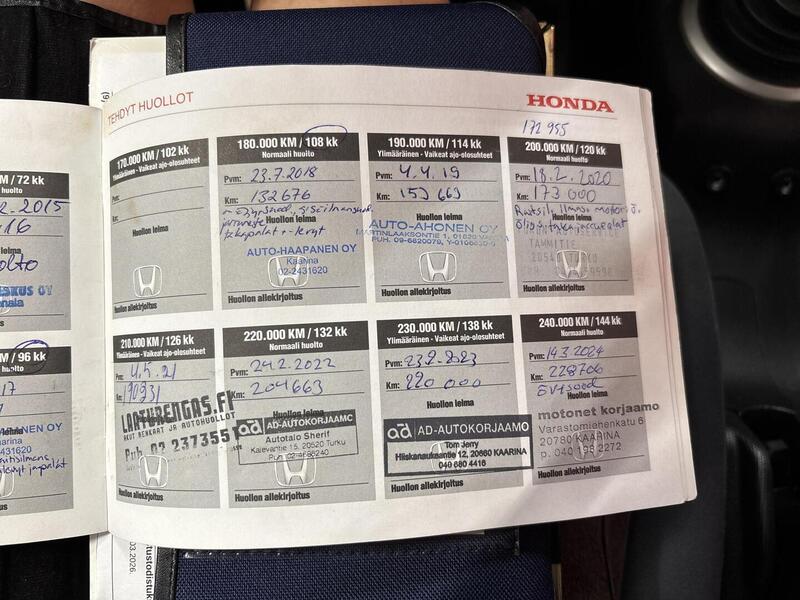 TEHDYT HUOLLOT
HONDA
172 955
M / 72 kk
huolto
2015
16
olto
KUS OY
nala
M / 96 kk
huolto
17
NEN OY
arina
431620
170.000 KM / 102 kk
Ylimääräinen - Vaikeat ajo-olosuhteet
Pvm:
Km:
Huollon leima
Huollon allekirjoitus
180.000 KM / 108 kk
Normaali huolto
Pvm: 23.7.2018
Km: 132676
Huollon leima
takapalat + levyt
AUTO-HAAPANEN OY
Kaarina
02-2431620
Huollon allekirjoitus
190.000 KM / 114 kk
Ylimääräinen - Vaikeat ajo-olosuhteet
Pvm: 4.4.19
Km: 153 663
Huollon leima
AUTO-AHONEN OY
MARTINLAAKSONTIE 1, 01620 VANTAA
PUH. 09-6620079,
Huollon allekirjoitus
200.000 KM / 120 kk
Normaali huolto
Pvm: 18.2.2020
Km: 173 000
Huollon leima
TAMMITIE
Huollon allekirjoitus
210.000 KM / 126 kk
Ylimääräinen - Vaikeat ajo-olosuhteet
Pvm: 4.5.21
Km: 190931
Huollon leima
LAATURENGAS.FI
AKUT RENKAAT JA AUTOHUOLLOT
Puh. 02 237355
Huollon allekirjoitus
220.000 KM / 132 kk
Normaali huolto
Pvm: 24.2.2022
Km: 204663
Huollon leima
ad AD-AUTOKORJAAMO
Autotalo Sherif
Kalevantie 15, 20520 Turku
Huollon allekirjoitus
230.000 KM / 138 kk
Ylimääräinen - Vaikeat ajo-olosuhteet
Pvm: 23.2.2023
Km: 220 000
Huollon leima
ad AD-AUTOKORJAAMO
Tom Jerry
Hiiskanaukaantie 12, 20660 KAARINA
040 680 4416
Huollon allekirjoitus
240.000 KM / 144 kk
Normaali huolto
Pvm: 14.3.2024
Km: 228706
Huollon leima
motonet korjaamo
Varastomiehenkatu 6
20780 KAARINA
Huollon allekirjoitus
03.2026.